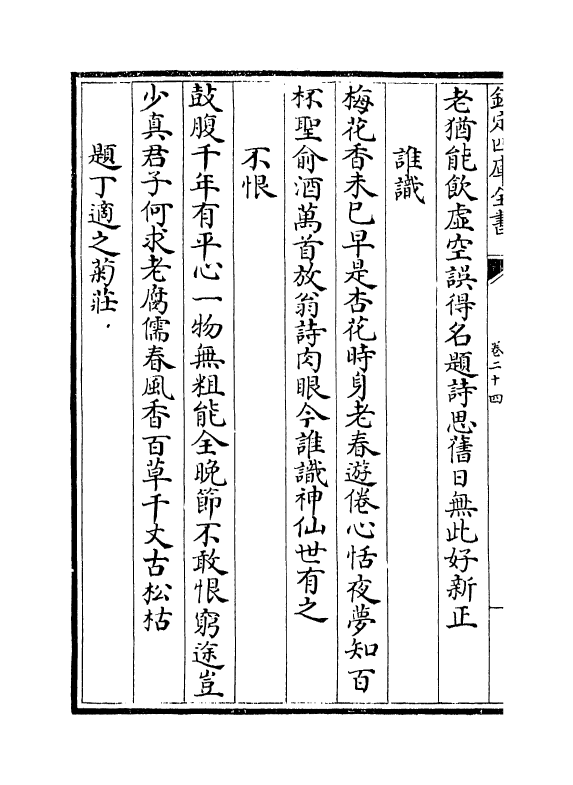 欽定四庫全書
卷二十四
老猶能飲虛空誤得名題詩思舊日無此好新正
誰識
梅花香未已早是杏花時身老春遊倦心恬夜夢知百
杯聖俞酒萬首放翁詩肉眼今誰識神仙世有之
不恨
鼓腹千年有平心一物無粗能全晚節不敢恨窮途豈
少真君子何求老腐儒春風香百草千丈古松枯
題丁適之菊莊